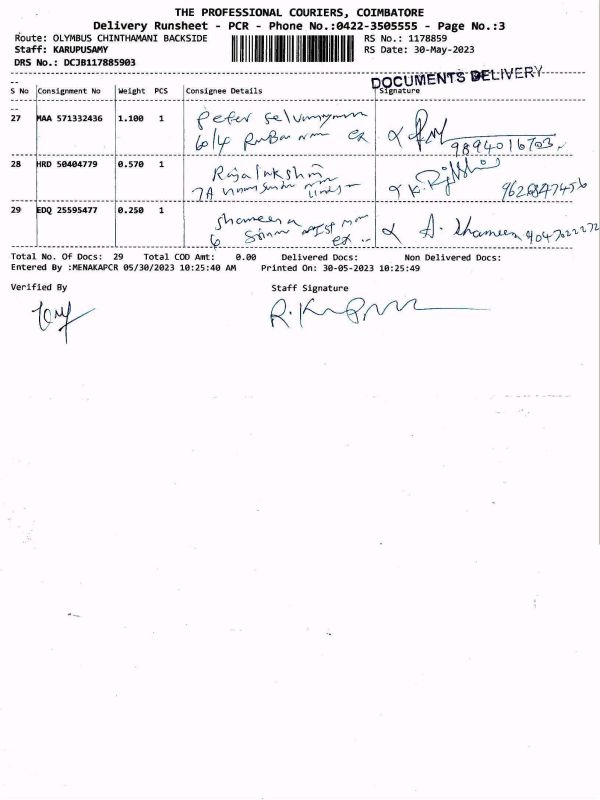 THE PROFESSIONAL COURIERS, COIMBATORE
Delivery Runsheet - PCR - Phone No.:0422-3505555 - Page No.:3
Route: OLYMBUS CHINTHAMANI BACKSIDE RS No.: 1178859
Staff: KARUPUSAMY RS Date: 30-May-2023
DRS No.: DCJB117885903
DOCUMENTS DELIVERY
S No Consignment No Weight PCS Consignee Details Signature
27 MAA 571332436 1.100 1 Peter
6/4
28 HRD 50404779 0.570 1 Rajalakshmi K.
7A
29 EDQ 25595477 0.250 1 Shameena A. Shameena
6
Total No. Of Docs: 29 Total COD Amt: 0.00 Delivered Docs: Non Delivered Docs:
Entered By :MENAKAPCR 05/30/2023 10:25:40 AM Printed On: 30-05-2023 10:25:49
Verified By Staff Signature